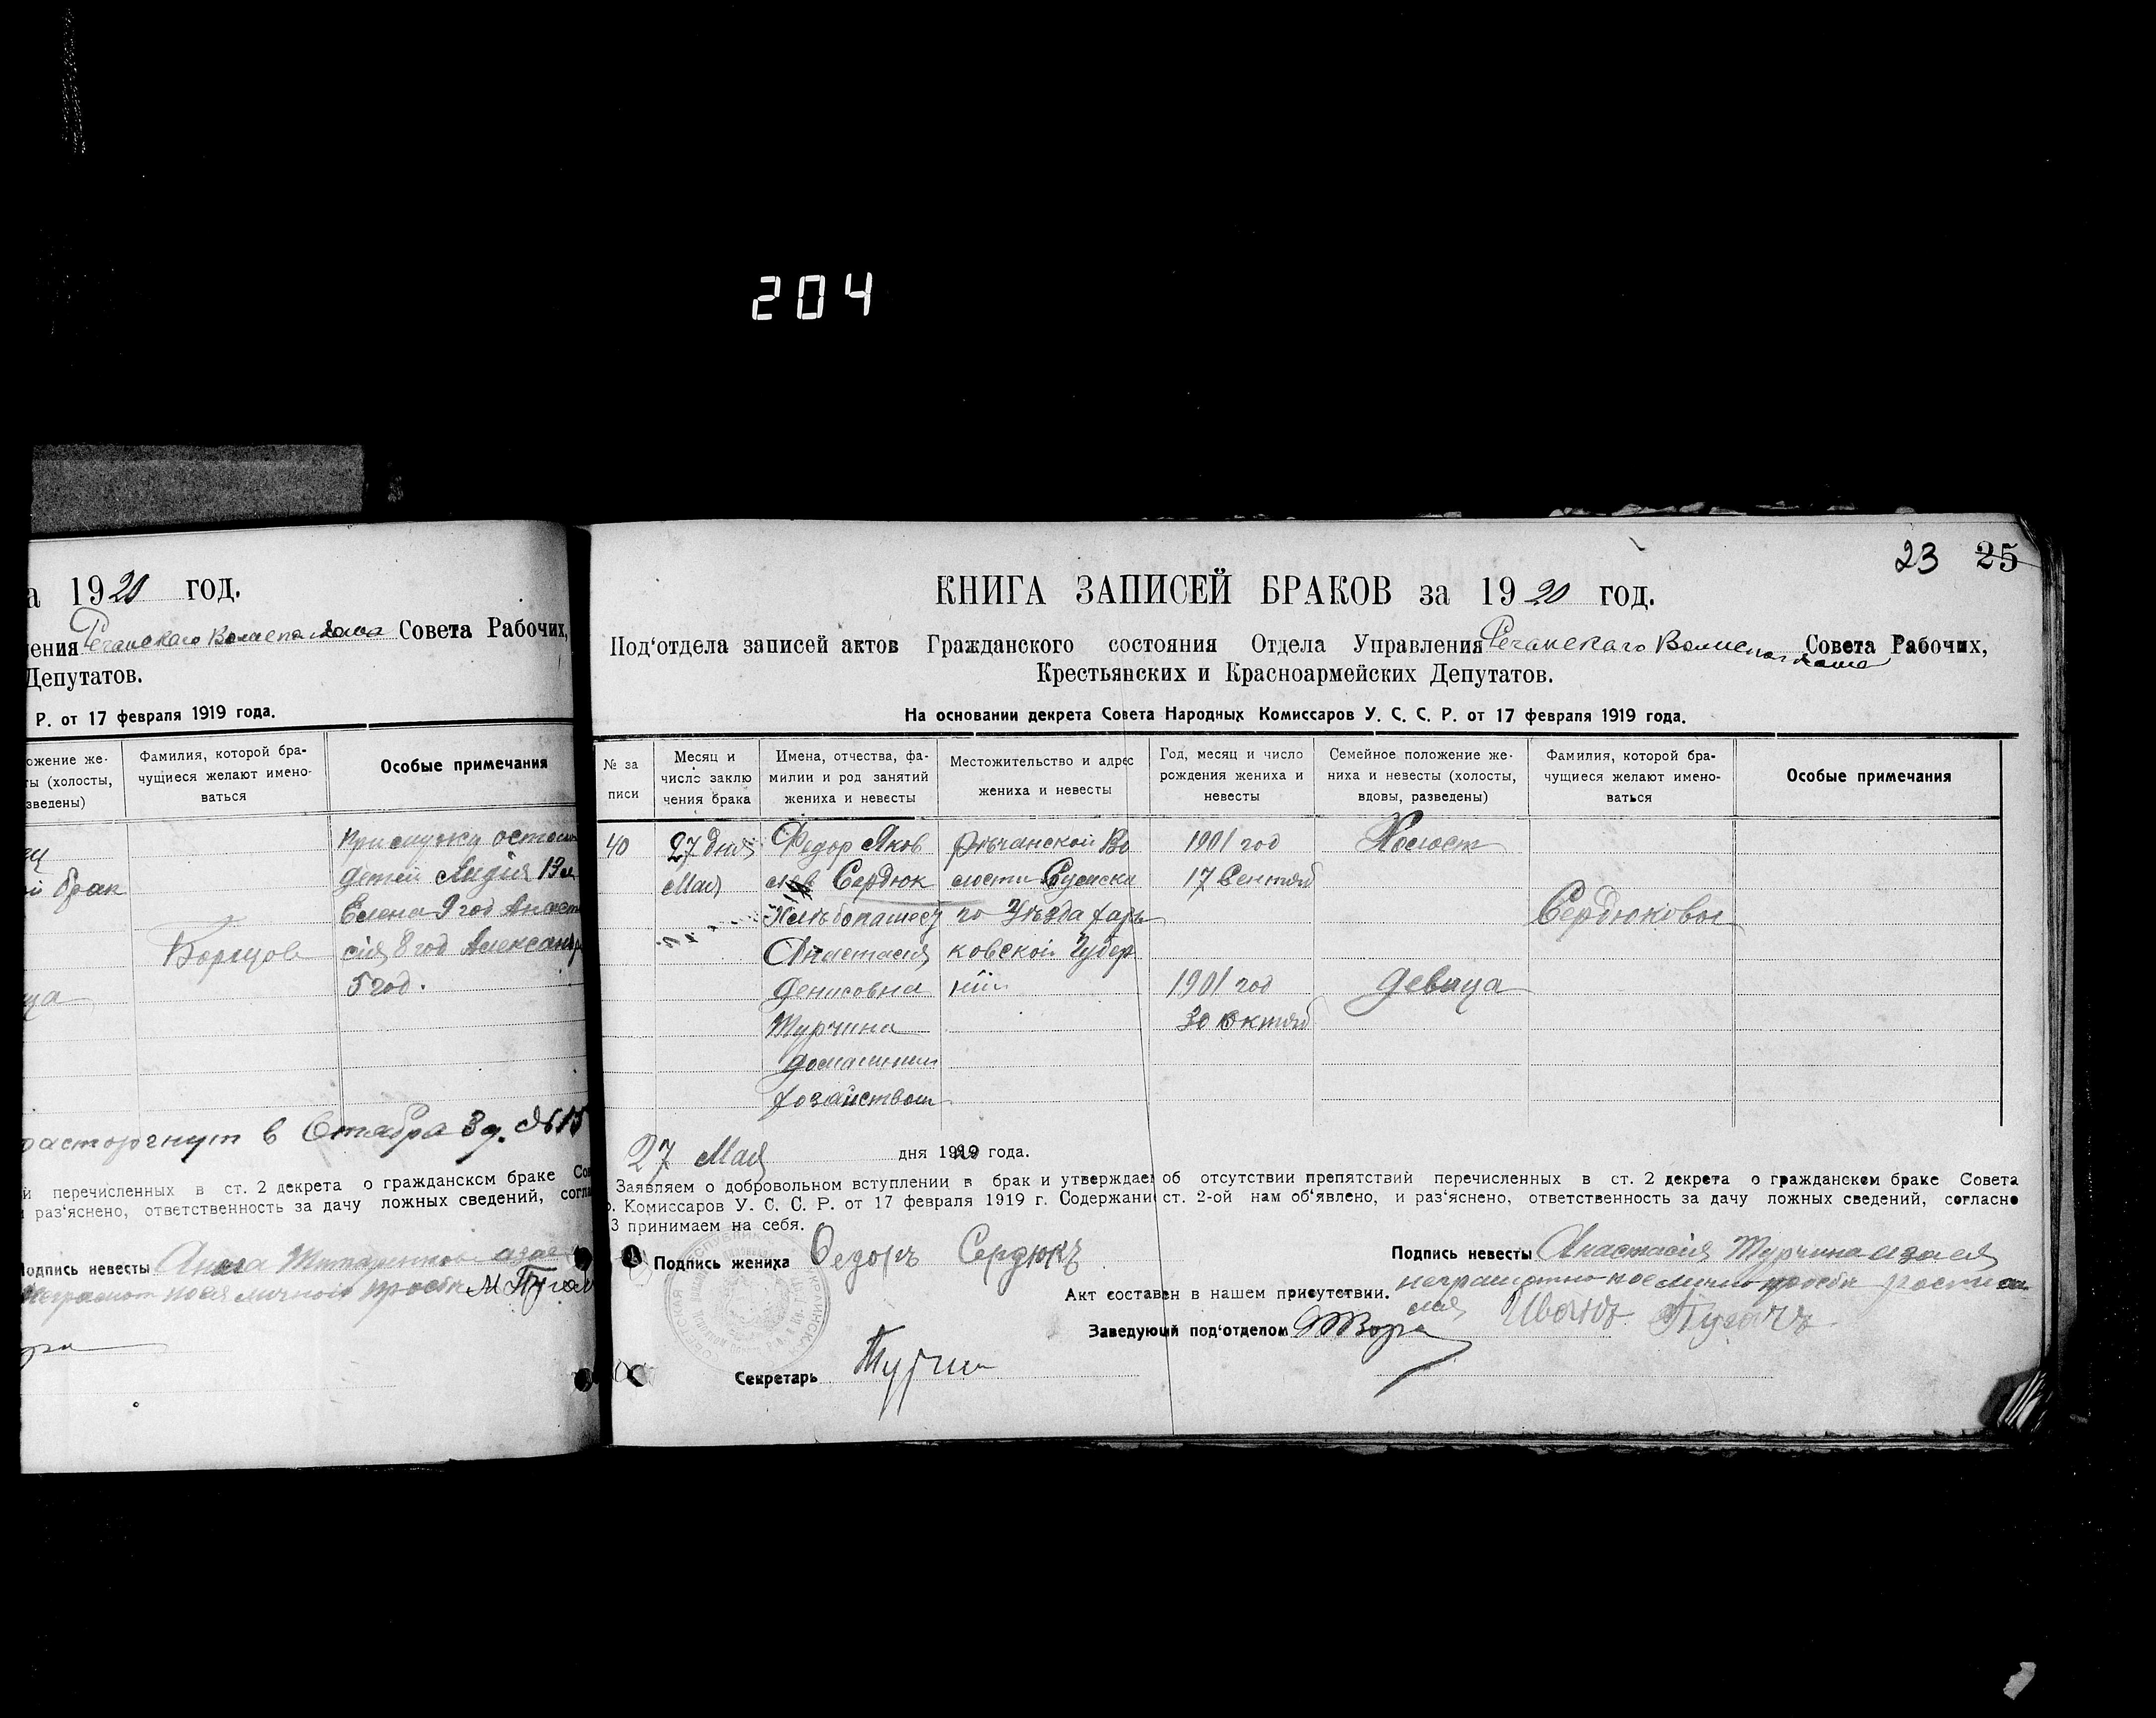 204
а 1920 год.
ения Речанскаго Волисполкома Совета Рабочих,
Депутатов.
Р. от 17 февраля 1919 года.
ожение же-
ты (холосты,
зведены)
Фамилия, которой бра-
чущиеся желают имено-
ваться
Особые примечания
ой брак
Борцов
ца
При мужу
детей Лидія 13
Елена 9 год Анаст
сія 8 год Александр
5 год.
расторгнут в
й перечисленных в ст. 2 декрета о гражданском браке Сов
и раз'яснено, ответственность за дачу ложных сведений, согла
Подпись невесты Анна
неграмот по ея личной просьбе
23 25
КНИГА ЗАПИСЕЙ БРАКОВ за 1920 год.
Под'отдела записей актов Гражданского состояния Отдела Управления Речанскаго Волисполкома Совета Рабочих,
Крестьянских и Красноармейских Депутатов.
На основании декрета Совета Народных Комиссаров У. С. С. Р. от 17 февраля 1919 года.
№ за
писи
Месяц и
число заклю
чения брака
Имена, отчества, фа-
милии и род занятий
жениха и невесты
Местожительство и адрес
жениха и невесты
Год, месяц и число
рождения жениха и
невесты
Семейное положение же-
ниха и невесты (холосты,
вдовы, разведены)
Фамилия, которой бра-
чущиеся желают имено-
ваться
Особые примечания
40
27 дня
Мая
Федор Яков
лев Сердюк
Хлебопашец
Анастасия
Денисовна
Турчина
домашним
хозайством
Речанской Во
лости Сумска
го Уезда харь
ковской Губер
нии
1901 год
17 Сентяб
1901 год
30 Октяб
Холост
девица
Сердюковы
27 Мая дня 1920 года.
Заявляем о добровольном вступлении в брак и утверждаем об отсутствии препятствий перечисленных в ст. 2 декрета о гражданском браке Совета
р. Комиссаров У. С. С. Р. от 17 февраля 1919 г. Содержани ст. 2-ой нам об'явлено, и раз'яснено, ответственность за дачу ложных сведений, согласно
3 принимаем на себя.
Подпись жениха Федоръ Сердюкъ
Подпись невесты Анастасия Турчина а за ея
неграмотно по ея лично просби росписал
ся Иванъ Пугачъ
Акт составен в нашем присутствии.
Заведующий под'отделом
Секретарь